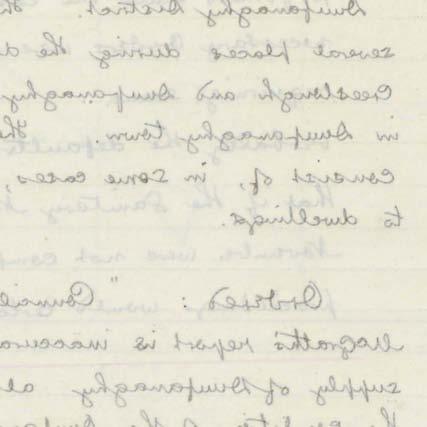 Dunfanaghy District. Th
several places during the
Creeslough and Dunfanaghy
in Dunfanaghy town. The
consist of, in some cases,
to dwellings.
Ordered : "Council
McGrath's report is inaccura
supply of Dunfanaghy